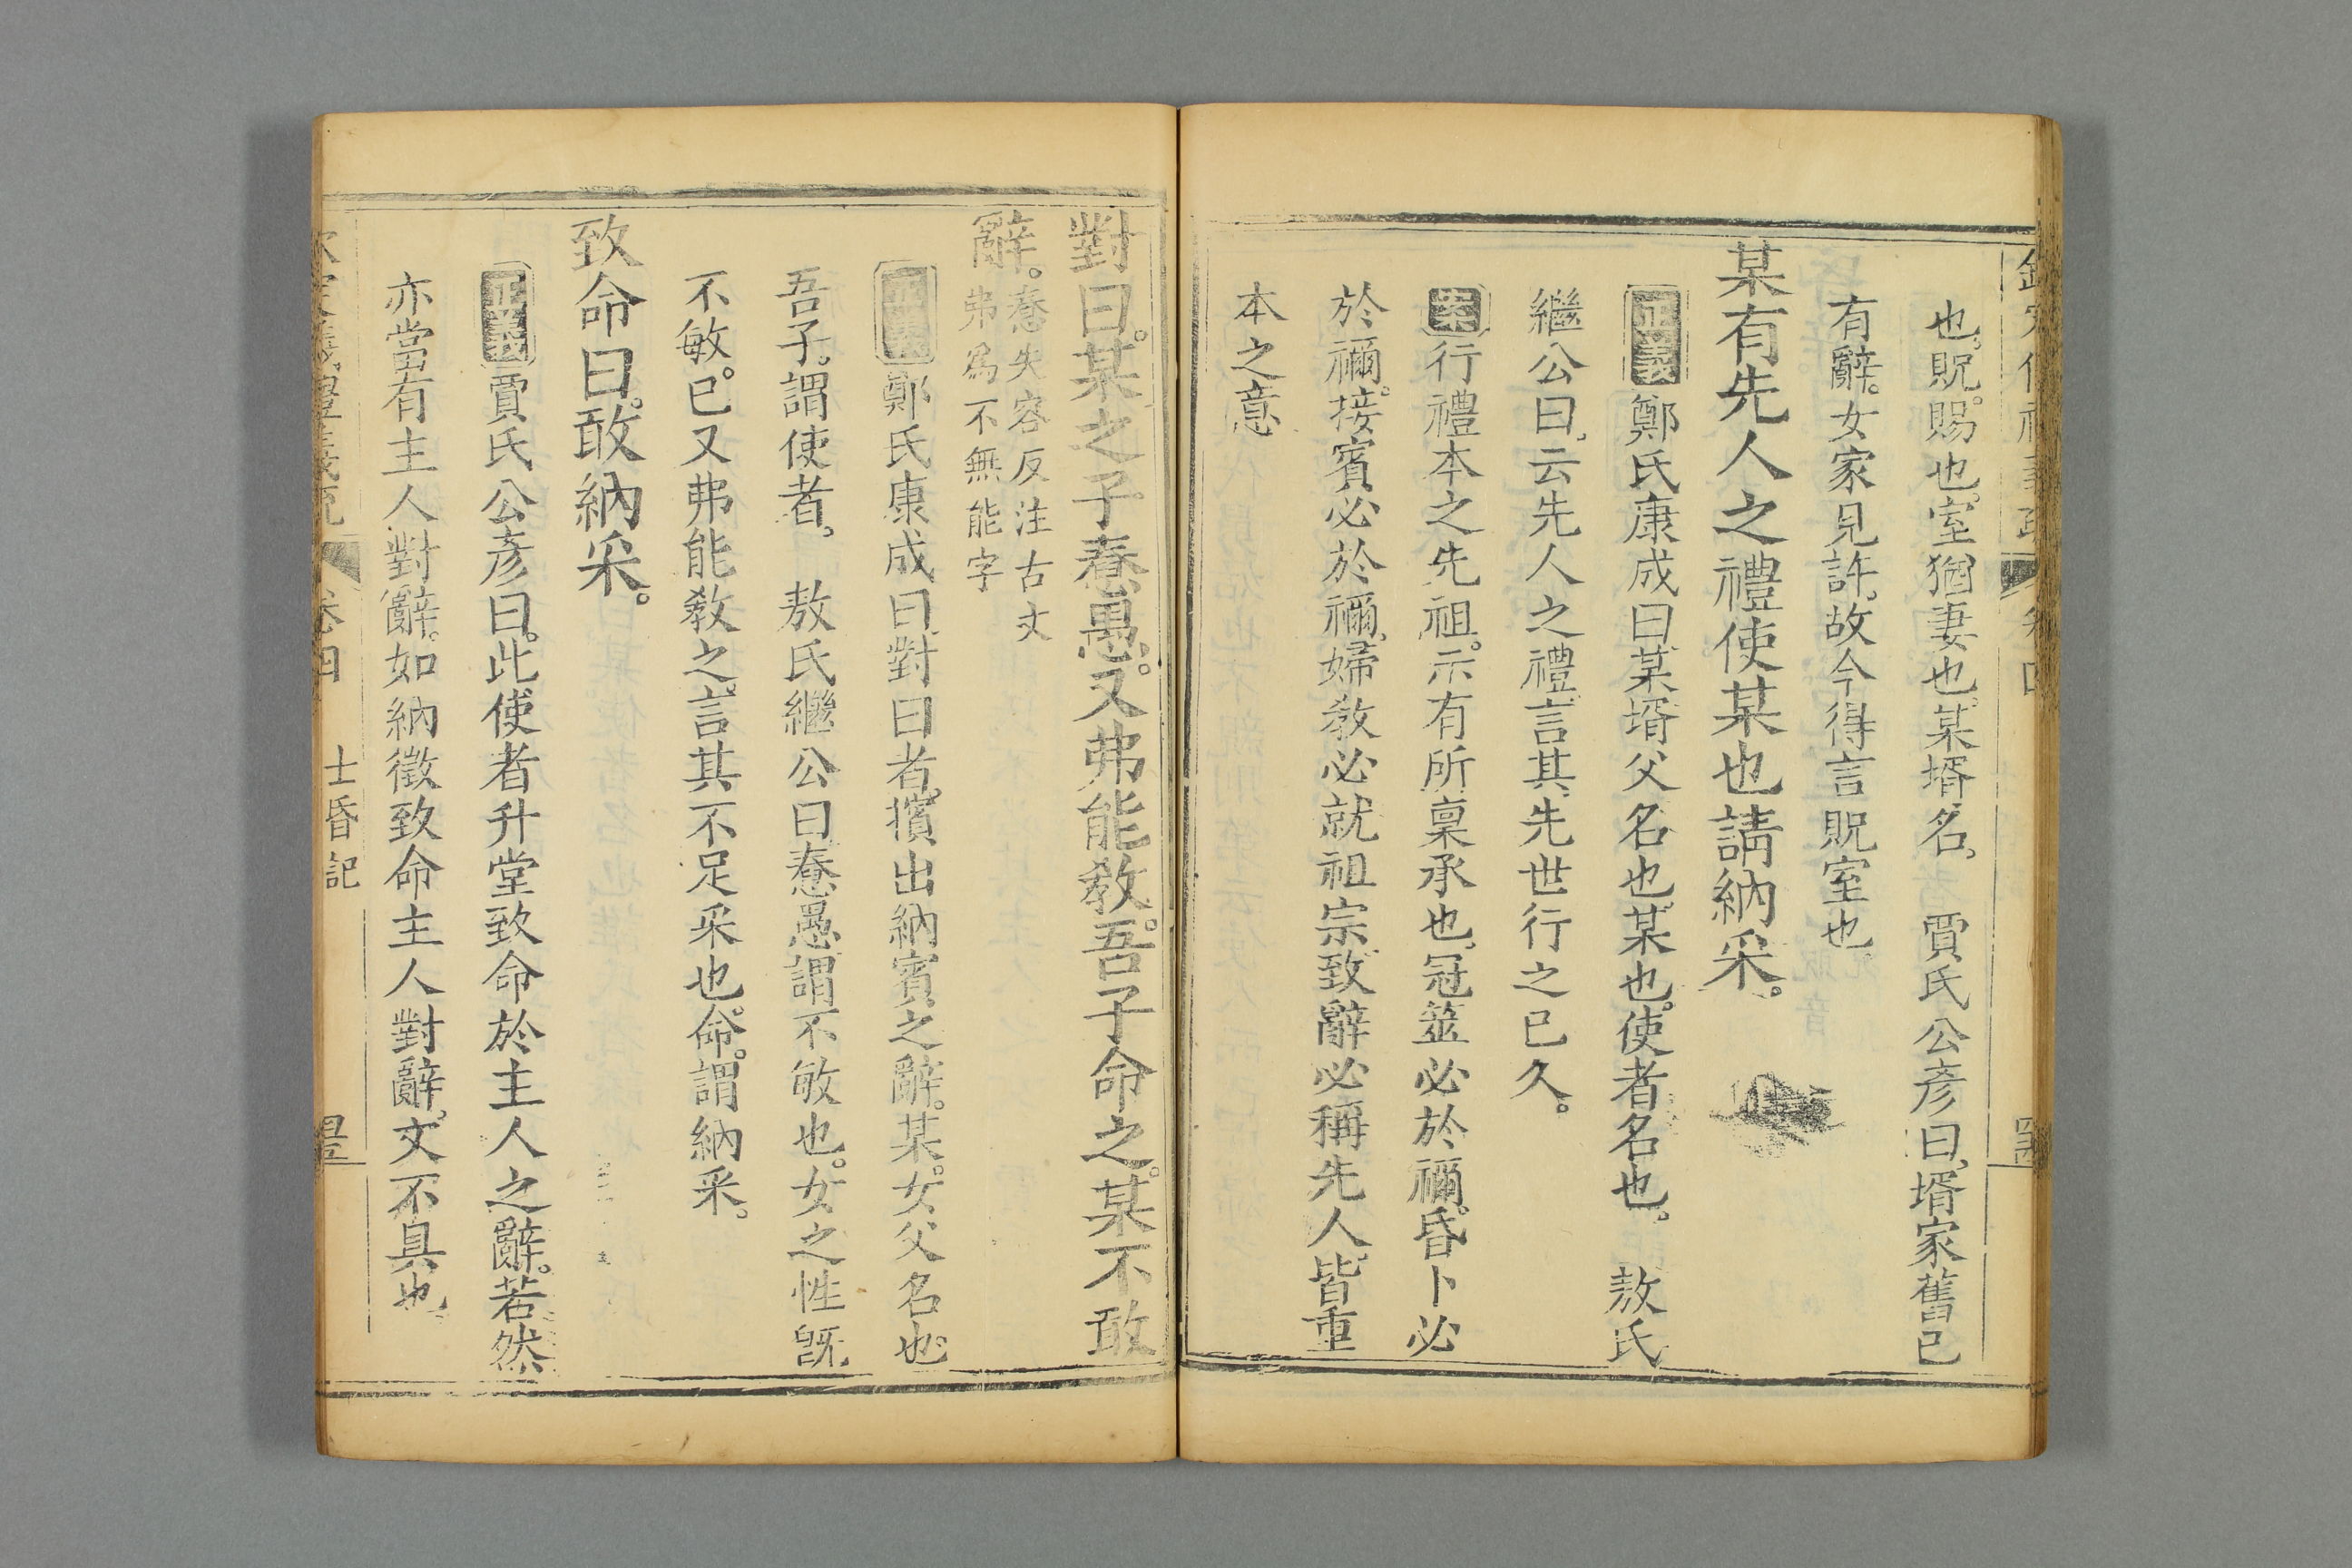 也。貺。賜也。室猶妻也。某壻名。　賈氏公彥曰。壻家舊已
有辭。女家見許。故今得言貺室也
某有先人之禮使某也請納采。
正義鄭氏康成曰某壻父名也。某也。使者名也。　敖氏
繼公曰。云先人之禮。言其先世行之已久。
案行禮本之先祖。示有所稟承也。冠筮必於禰。昏卜必
於禰。接賓必於禰。婦教必就祖宗。致辭必稱先人。皆重
本之意
對曰。某之子惷愚。又弗能教。吾子命之。某不敢
辭。惷失容反注古文
弗爲不無能字
正義鄭氏康成曰對曰者。擯出納賓之辭。某。女父名也。
吾子。謂使者。　敖氏繼公曰惷愚謂不敏也。女之性旣
不敏。已又弗能敎之。言其不足采也。命。謂納采。
致命曰。敢納采。
正義賈氏公彥曰。此使者升堂致命於主人之辭。若然
亦當有主人對辭。如納徵致命主人對辭。文不具也。
卷四　士昏記